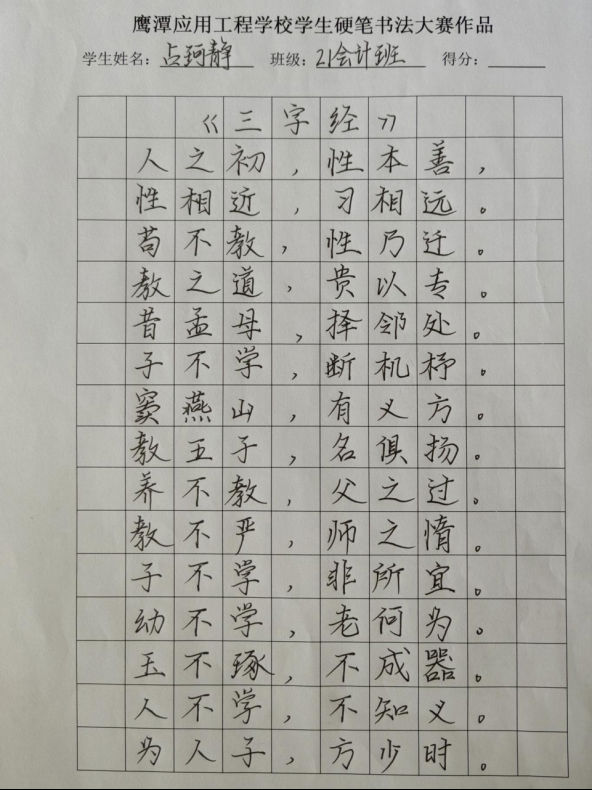 鹰潭应用工程学校学生硬笔书法大赛作品
学生姓名：占珂静 班级：21会计班 得分：
《三字经》
人之初，性本善，
性相近，习相远。
苟不教，性乃迁。
教之道，贵以专。
昔孟母，择邻处。
子不学，断机杼。
窦燕山，有义方。
教五子，名俱扬。
养不教，父之过。
教不严，师之惰。
子不学，非所宜。
幼不学，老何为。
玉不琢，不成器。
人不学，不知义。
为人子，方少时。